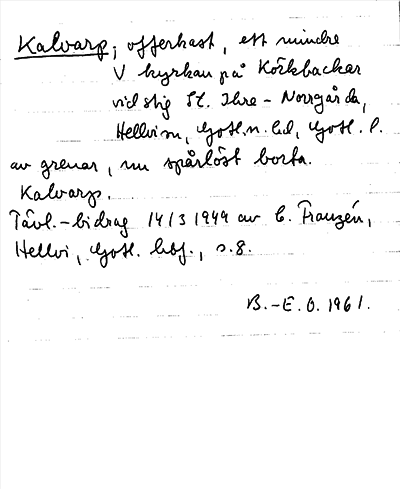 Kalvarp, offerkast, ett mindre
V kyrkan på Körkbackar
vid stig St. Ihre - Norrgårda,
Hellvi sn, Gotl.n. hd, Gotl. l.
av grenar, nu spårlöst borta.
Kalvarp.
Tävl.-bidrag 14/3 1949 av C. Franzén,
Hellvi, Gotl. hbf., s. 8.
B.-E. O. 1961.